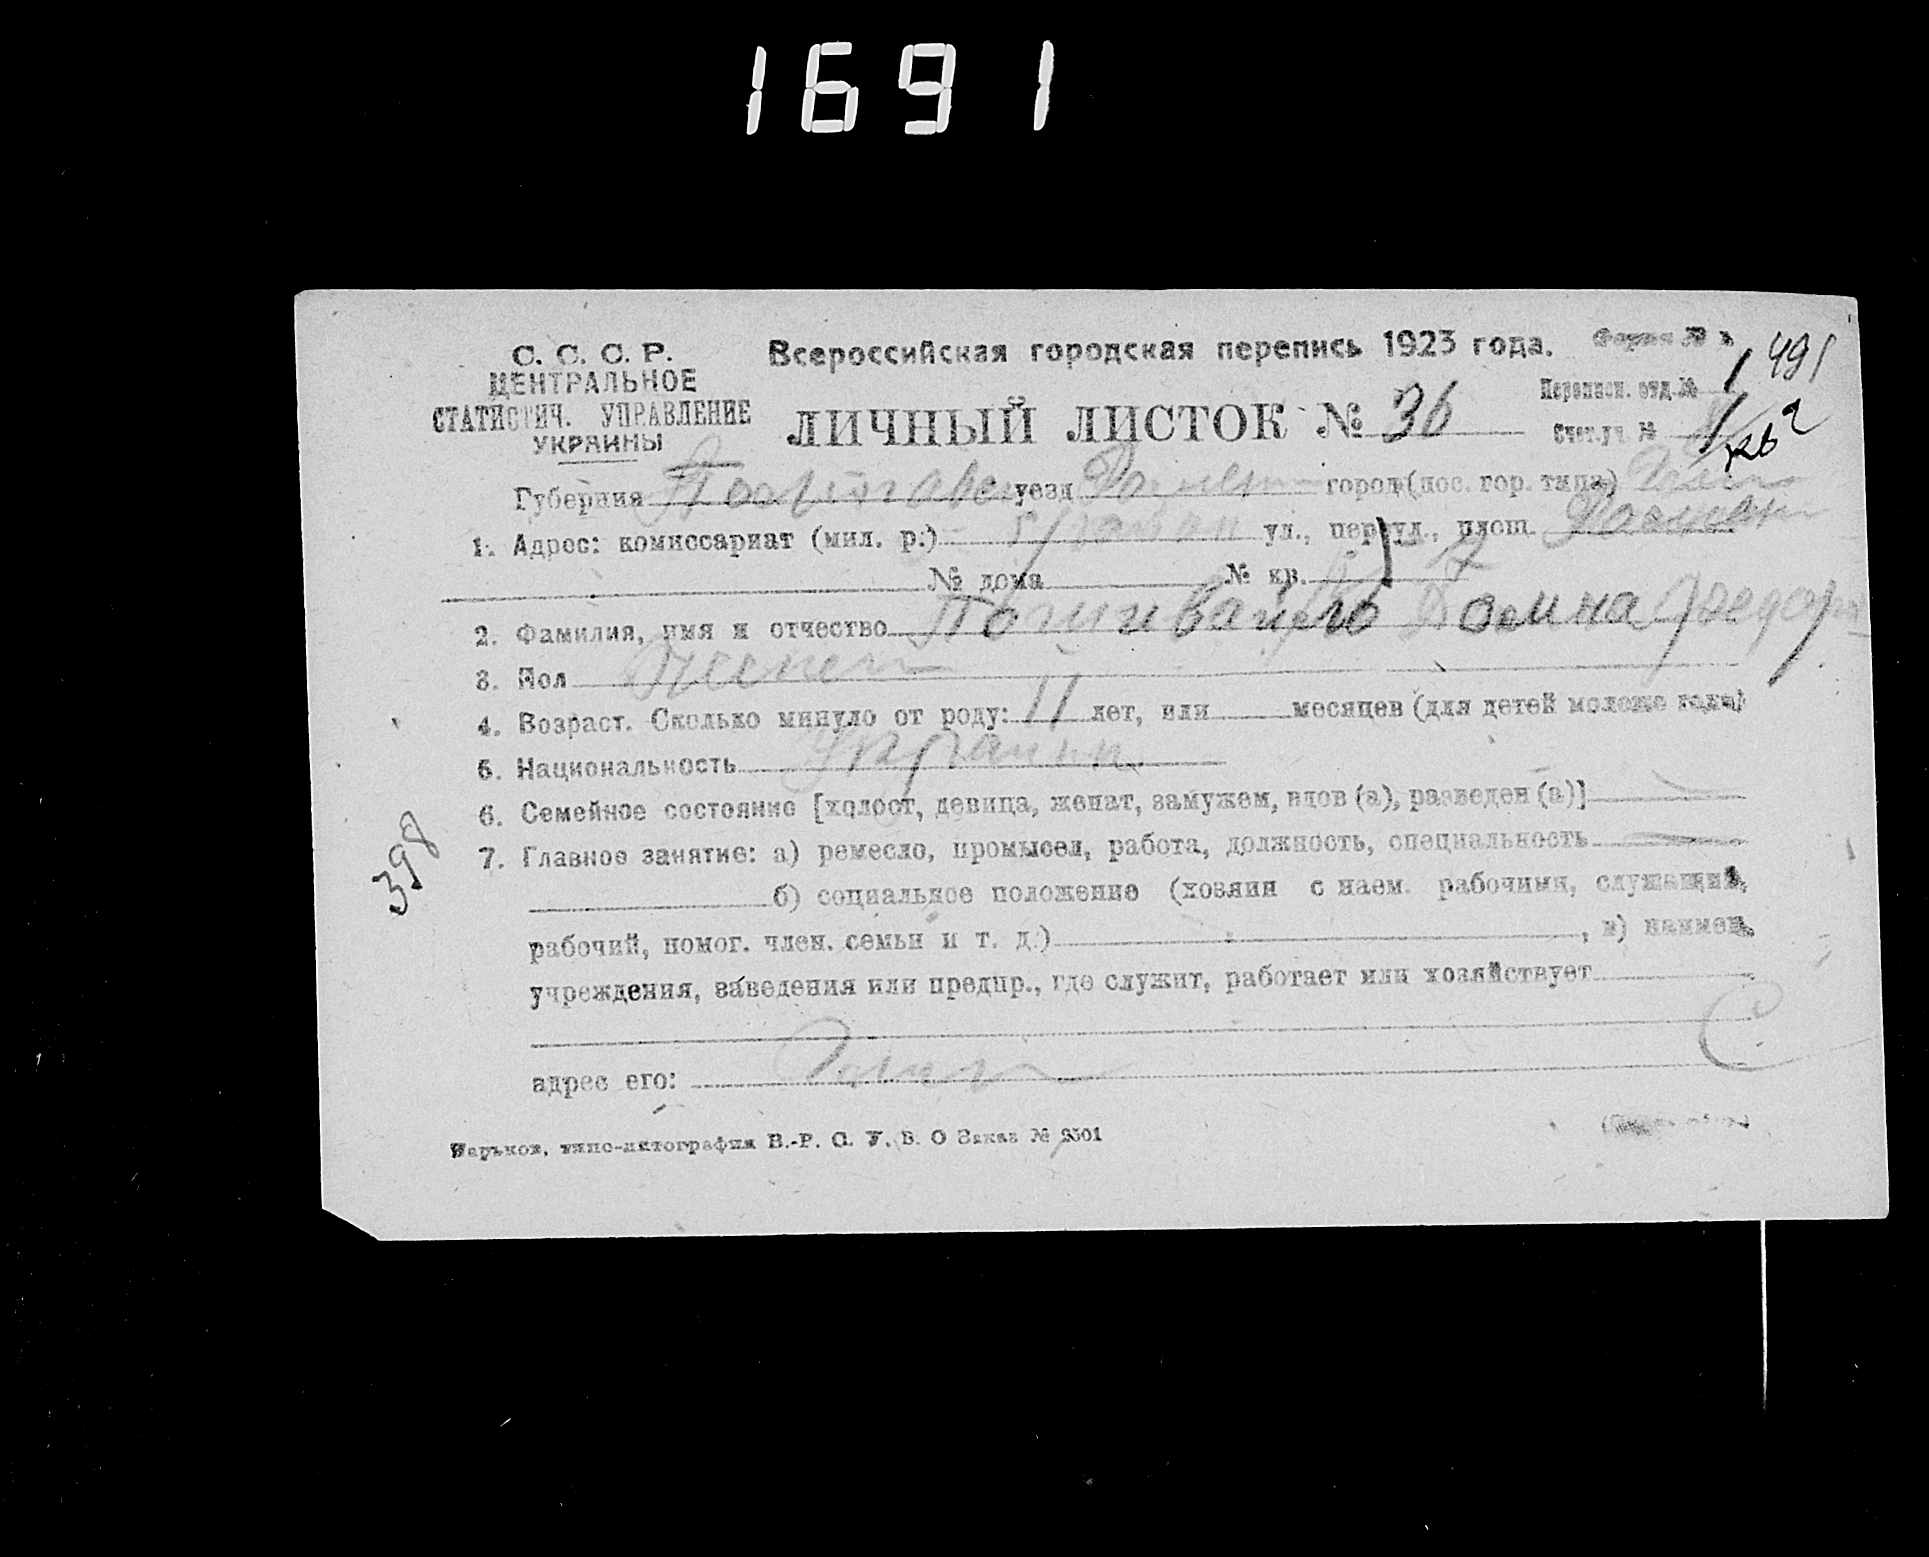 1691
С. С. С. Р.
ЦЕНТРАЛЬНОЕ
СТАТИСТИЧ. УПРАВЛЕНИЕ
УКРАИНЫ
Всероссийская городская перепись 1923 года.
Форма №
491
ЛИЧНЫЙ ЛИСТОК № 36
Переписн. отд. № 1
Счет. уч. № 1
Губерния уезд город (пос. гор. типа)
1. Адрес: комиссариат (мил. р.) ул., пер ул., площ.
№ дома № кв.
2. Фамилия, имя и отчество Пошивайло Домна Федор
3. Пол Женск
4. Возраст. Сколько минуло от роду: 11 лет, или месяцев (для детей моложе года)
5. Национальность Украинк
6. Семейное состояние [холост, девица, женат, замужем, вдов (а), разведен (а)]
7. Главное занятие: а) ремесло, промысел, работа, должность, специальность
б) социальное положение (хозяин с наем. рабочими, служащий,
рабочий, помог. член. семьи и т. д.) , в) наимен.
учреждения, заведения или предпр., где служит, работает или хозяйствует
адрес его:
398
Харьков, типо-литография В.-Р. С. У. В. О Заказ №